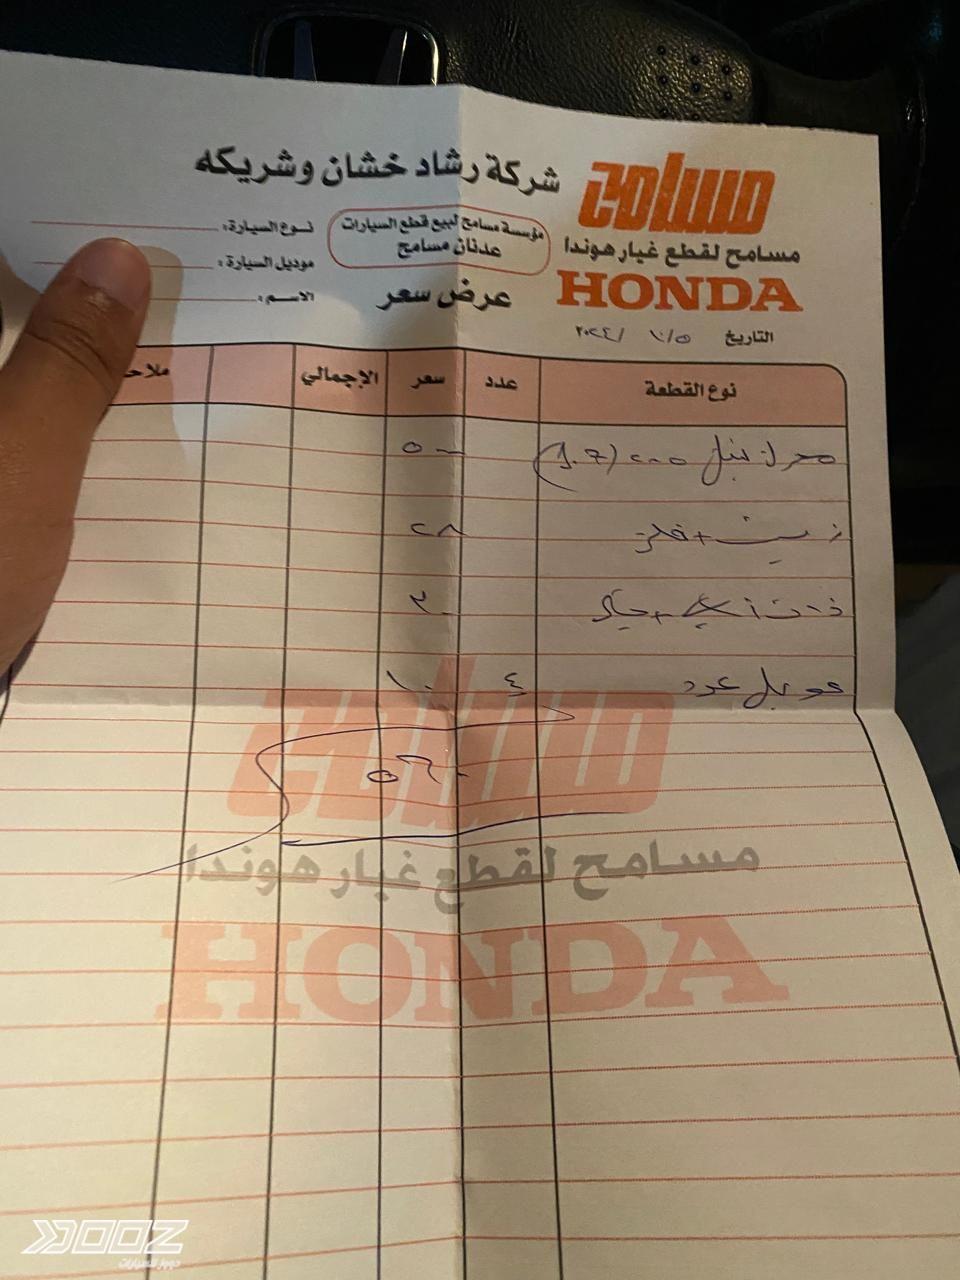 شركة رشاد خشان وشريكه
مسامح
مسامح لقطع غيار هوندا
HONDA
مؤسسة مسامح لبيع قطع السيارات
عدنان مسامح
نوع السيارة:
موديل السيارة:
الاسم:
عرض سعر
التاريخ ١٠/٥ /٢٠٢٤
نوع القطعة عدد سعر الإجمالي
٥٠٠
زيت + فلتر ٢٨
٣٠
٤ ١٠
٥٦٠
مسامح
مسامح لقطع غيار هوندا
HONDA
DOOZ
دووز للسيارات